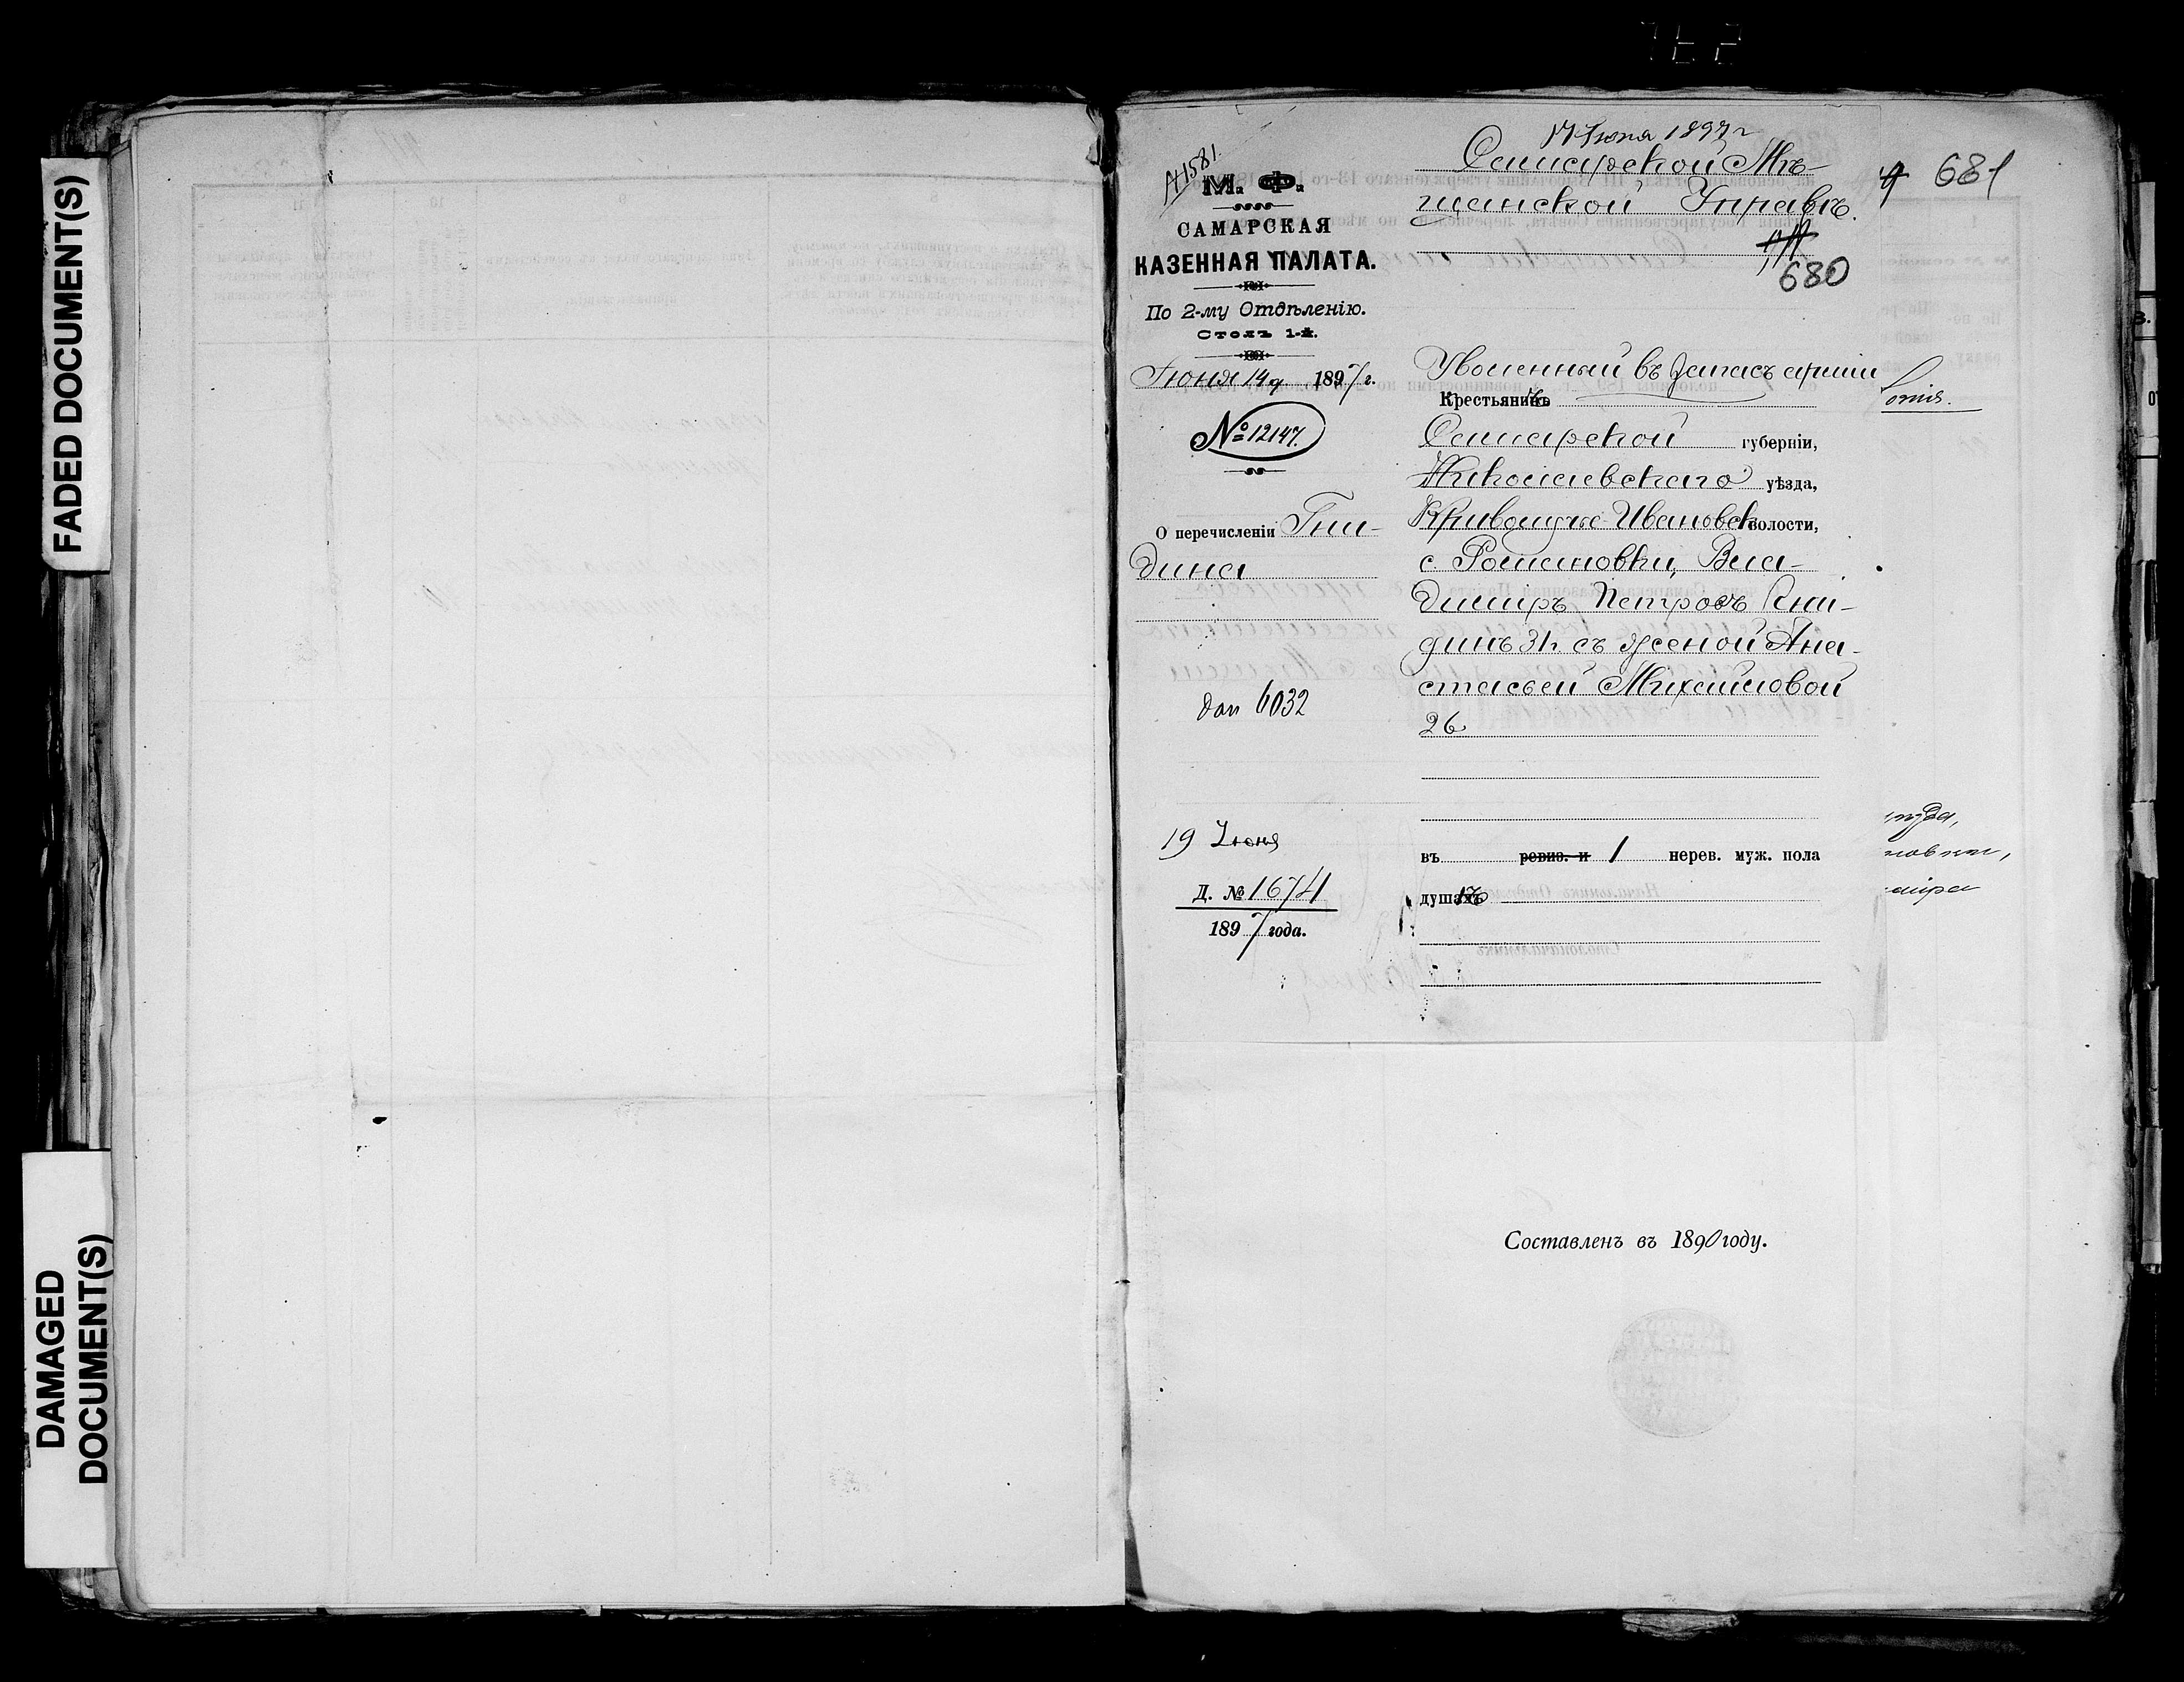 FADED DOCUMENT(S)
DAMAGED
DOCUMENT(S)
№ 1581.
М. Ф.
САМАРСКАЯ
КАЗЕННАЯ ПАЛАТА.
По 2-му Отдѣленію.
Столъ 1-й.
Іюня 14 д. 1897 г.
№ 12147.
О перечисленіи Гни-
дина
6032
19 Іюня
Д. № 1674
1897 года.
17 Іюня 1897 г
Самарской Мѣ-
щанской Управѣ.
680
681
Уволенный въ запасъ арміи
Крестьянинъ
Самарской губерніи,
Николаевскаго уѣзда,
Криволучье-Ивановск волости,
с. Романовки, Вла-
диміръ Петровъ Гни-
динъ 31 г. съ женой Ана-
стасьей Михайловой
26
въ ревиз. и 1 нерев. муж. пола
душахъ
Составленъ въ 1890 году.